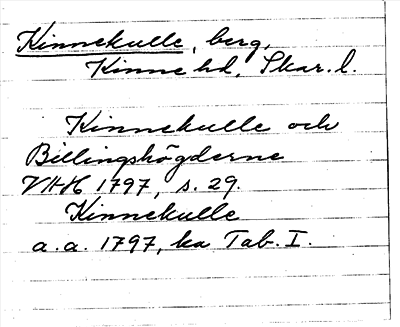 Kinnekulle, berg,
Kinne hd, Skar. l.
Kinnekulle och
Billingshögderne
VAH 1797, s. 29.
Kinnekulle
a. a. 1797, ka Tab. I.